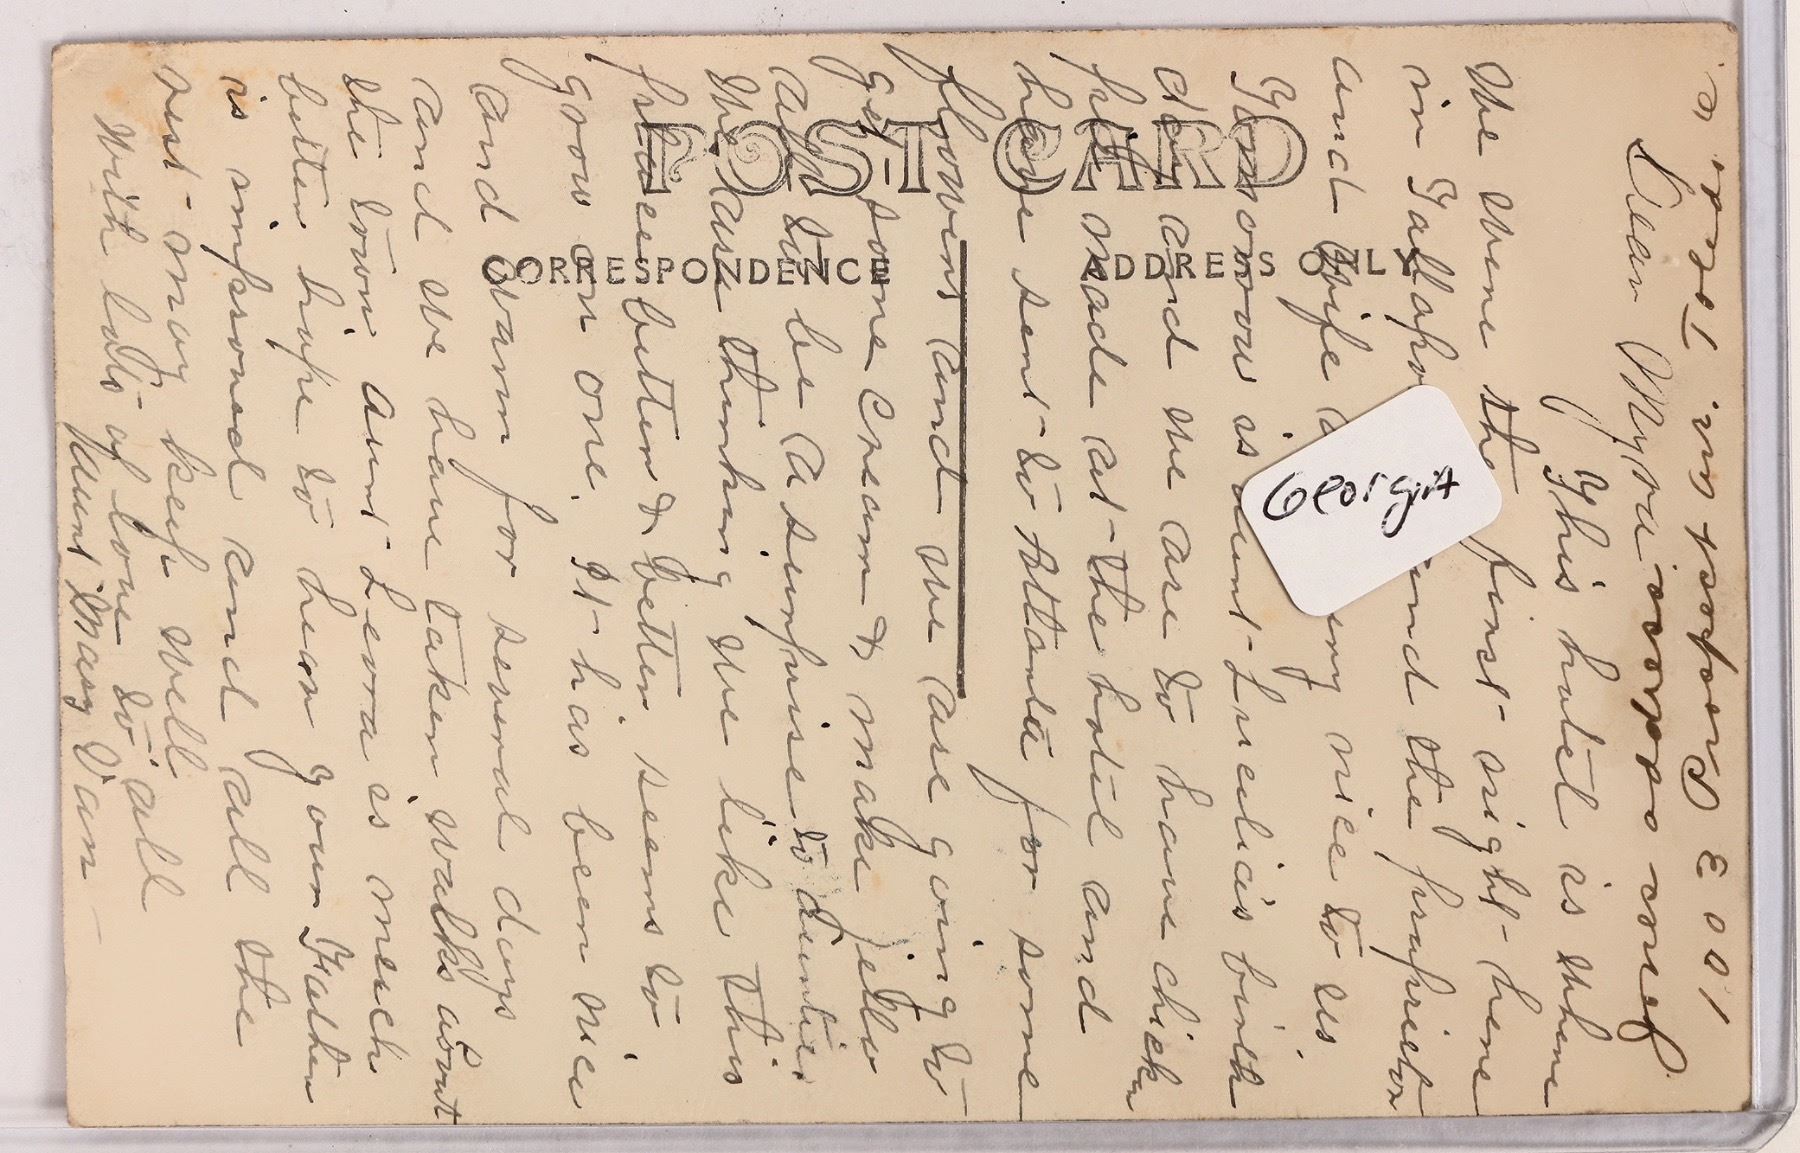 POST CARD
CORRESPONDENCE
ADDRESS ONLY
Georgia
your address
1003 Prospect Ave. Toron
Dear Myra
This hotel is where
we were the first night here
in Tallapo
and the proprietor
and wife very nice to us.
Tomorrow is aunt birth
day and we are to have chicken
pie made at the hotel and
have sent to Atlanta for some
flowers and we are going to
get some cream & make jello
all to be a surprise to auntie.
We are thinking we like this
place better & better seems to
grow on one. It has been nice
and warm for several days
and we have taken walks about
the town. Aunt Leora is much
better hope to hear your Father
is improved and all the
rest may keep well
With lots of love to all
Aunt Mary Van